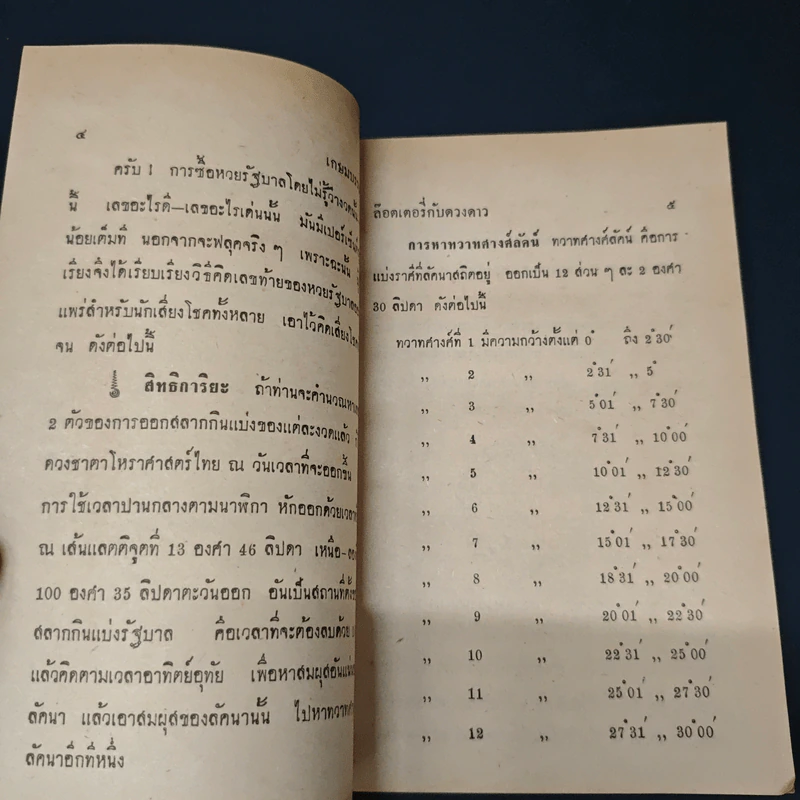 ๔
ครับ ! การซื้อหวยรัฐบาลโดยไม่รู้ว่างวดนั้น
นี้ เลขอะไรดี—เลขอะไรเด่นนั้น มันมีเปอร์เซ็นต์
น้อยเต็มที่ นอกจากจะฟลุคจริง ๆ เพราะฉะนั้น
เรื่องจึงได้เรียบเรียงวิธีคิดเลขท้ายของหวยรัฐบาล
แพร่สำหรับนักเสี่ยงโชคทั้งหลาย เอาไว้คิดเสี่ยงโชค
จน ดังต่อไปนี้
สิทธิการิยะ ถ้าท่านจะคำนวณหา
2 ตัวของการออกสลากกินแบ่งของแต่ละงวดแล้ว
ดวงชาตาโหราศาสตร์ไทย ณ วันเวลาที่จะออกนั้น
การใช้เวลาปานกลางตามนาฬิกา หักออกด้วยเวลา
ณ เส้นแลตติจูตที่ 13 องศา 46 ลิปดา เหนือ
100 องศา 35 ลิปดาตะวันออก อันเป็นสถานที่ตั้ง
สลากกินแบ่งรัฐบาล คือเวลาที่จะต้องลบด้วย
แล้วคิดตามเวลาอาทิตย์อุทัย เพื่อหาสมผุสอัน
ลัคนา แล้วเอาสมผุสของลัคนานั้น ไปหาทวาทศ
ลัคนาอีกทีหนึ่ง
ล๊อตเตอรี่กับดวงดาว ๕
การหาทวาทศางศ์ลัคน์ ทวาทศางศ์ลัคน์ คือการ
แบ่งราศีที่ลัคนาสถิตอยู่ ออกเป็น 12 ส่วน ๆ ละ 2 องศา
30 ลิปดา ดังต่อไปนี้
ทวาทศางศ์ที่ 1 มีความกว้างตั้งแต่ 0° ถึง 2°30′
,, 2 ,, 2°31′ ,, 5°
,, 3 ,, 5°01′ ,, 7°30′
,, 4 ,, 7°31′ ,, 10°00′
,, 5 ,, 10°01′ ,, 12°30′
,, 6 ,, 12°31′ ,, 15°00′
,, 7 ,, 15°01′ ,, 17°30′
,, 8 ,, 18°31′ ,, 20°00′
,, 9 ,, 20°01′ ,, 22°30′
,, 10 ,, 22°31′ ,, 25°00′
,, 11 ,, 25°01′ ,, 27°30′
,, 12 ,, 27°31′ ,, 30°00′